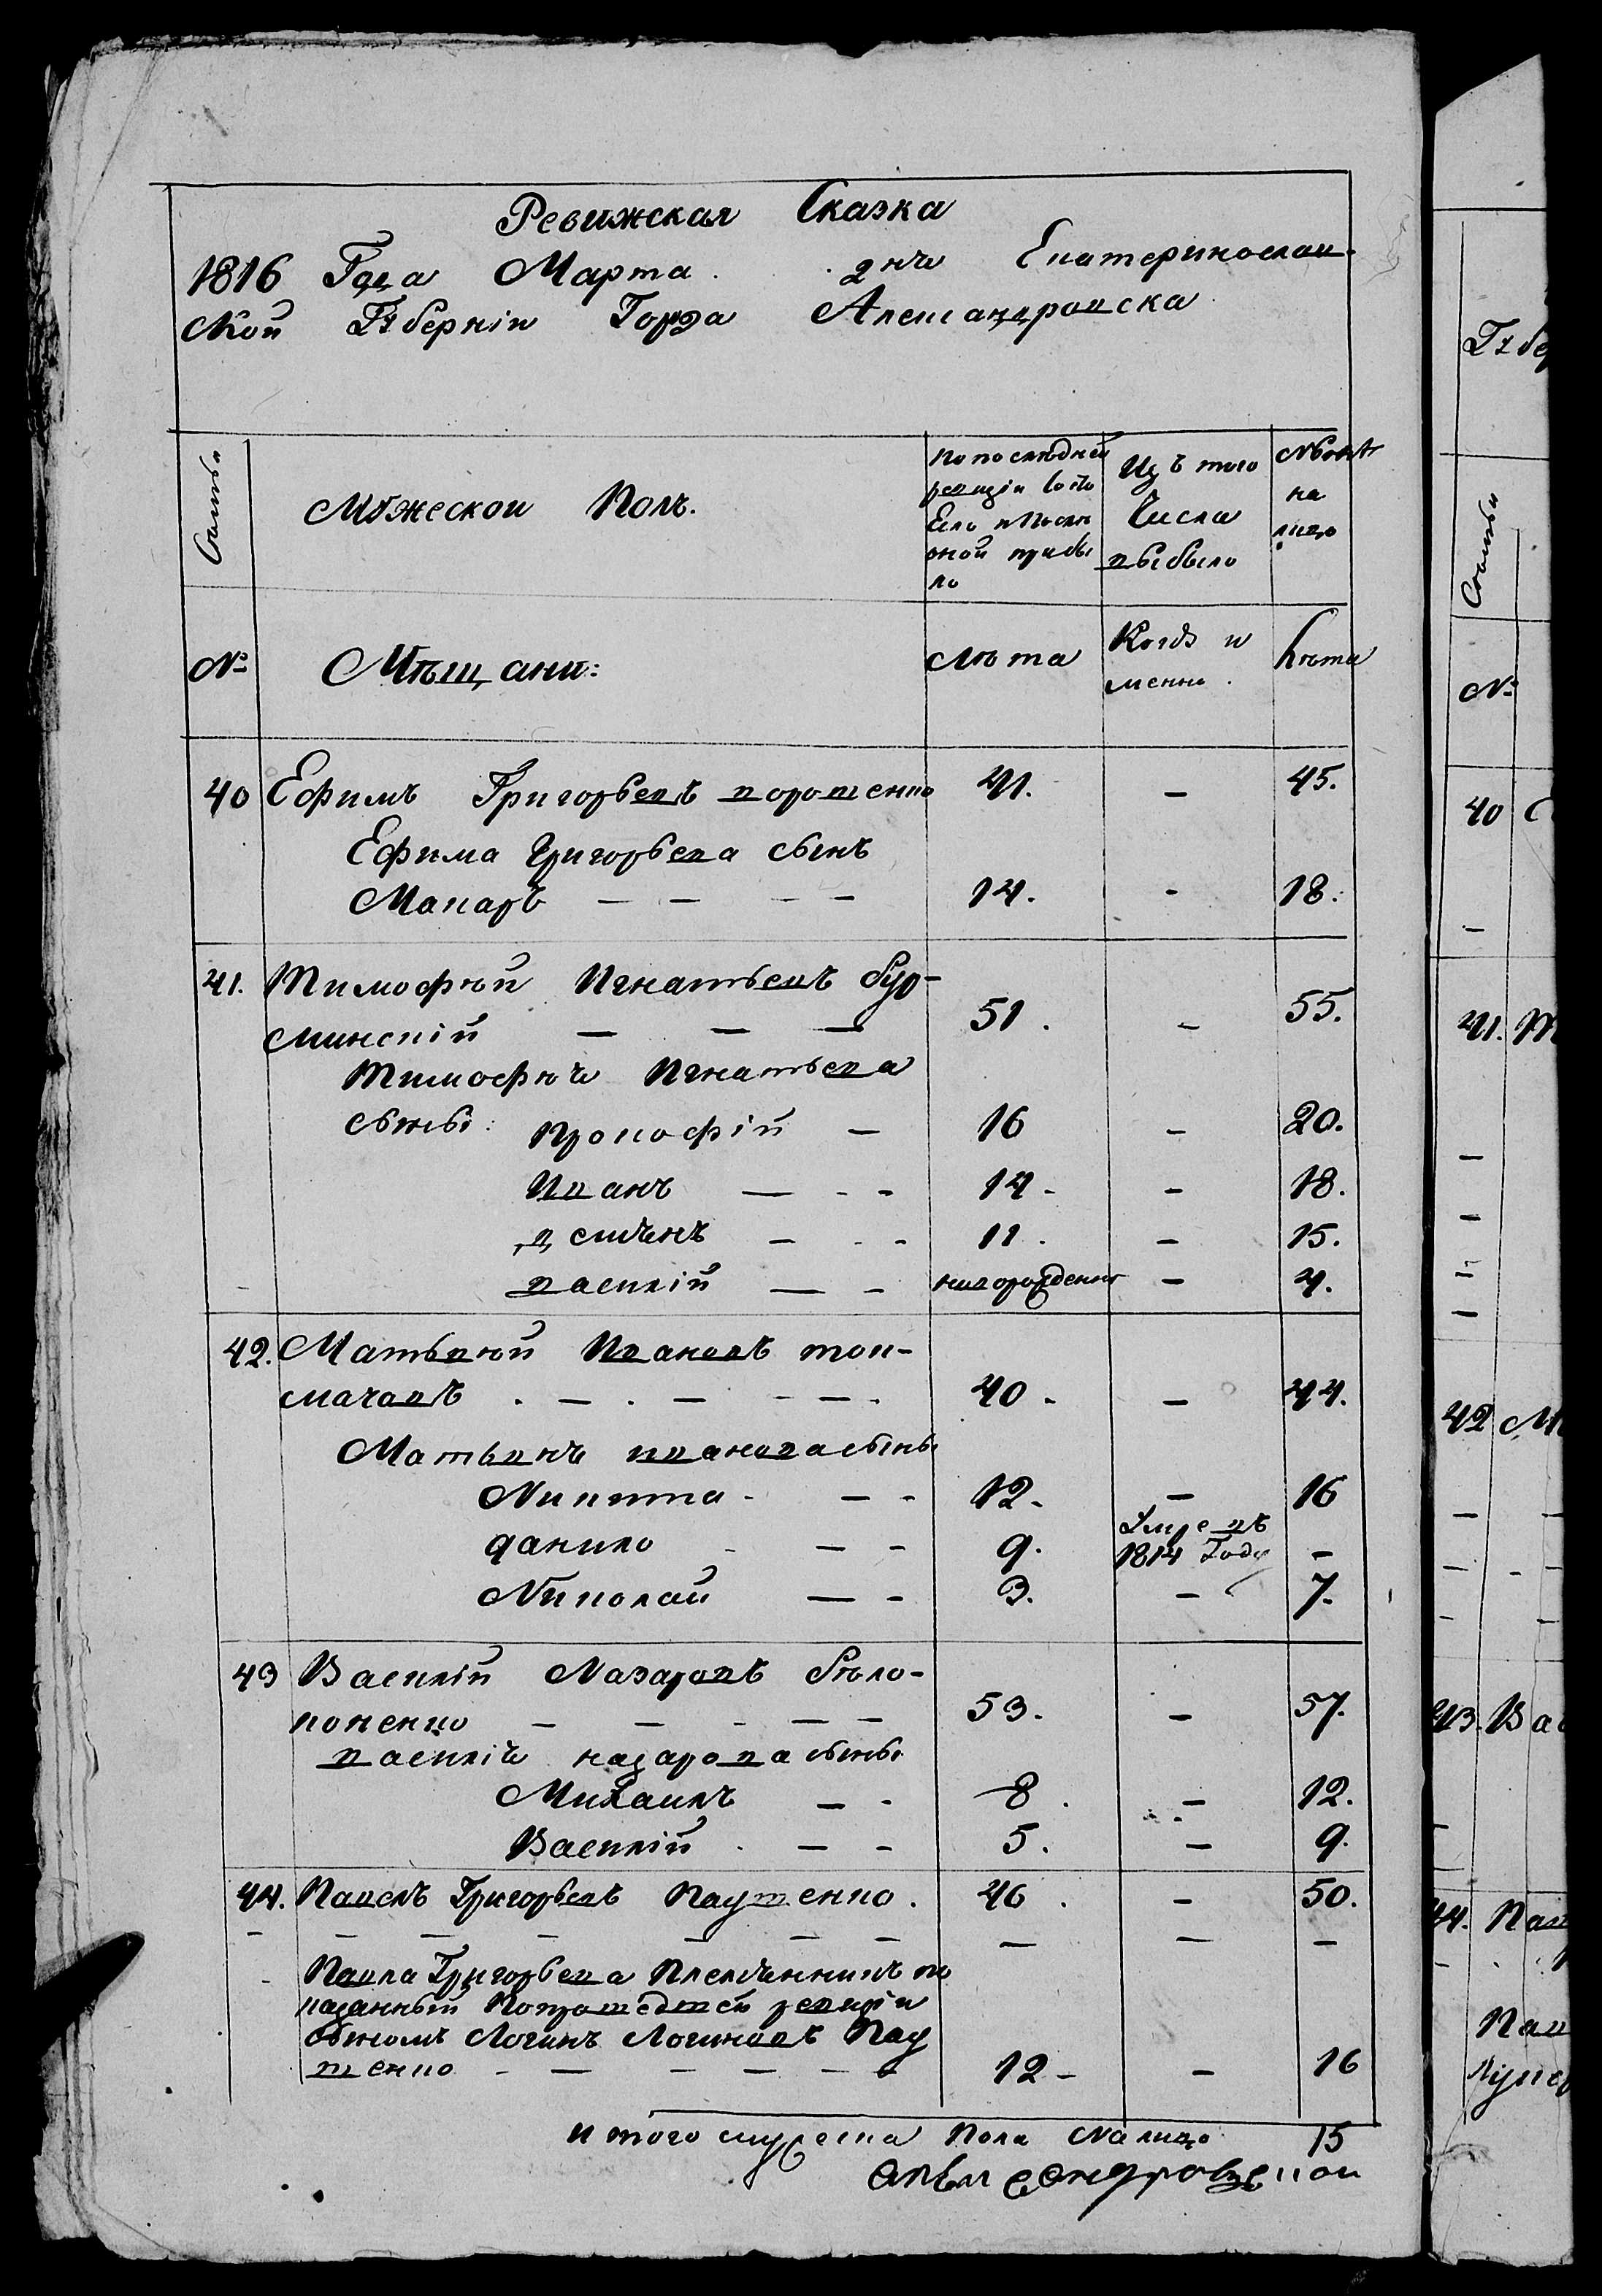 Ревижская Сказка
1816 Года Марта дня Екатеринослав-
ской Губерніи Города Александровска
Статьи
Мужескои Полъ.
По последней
ревизіи состо
яло и после
оной прибы
ло
Изъ того
Числа
выбыло
Ныне
на
лицо
№
Мѣщани:
лѣта
Когда и
менно.
лѣта
40 Ефимъ Григорьевъ ворошенко 41. – 45.
Ефима Григорьева сынъ
Макаръ – – – – 14. - 18.
41. Тимофѣй Игнатьевъ бур-
минскій – – – 51. – 55.
Тимофѣя Игнатьева
сыны: прокофій – 16 – 20.
Иванъ – - - 14 - – 18.
демьянъ – - - 11. – 15.
василій – - новорожденъ – 4.
42. Матьвѣй Ивановъ тол-
мачовъ . – . – - – . 40 - – 44.
Матьвѣя иванова сыны
Никита - – - 12 - – 16
данило - – - 9. Умре въ 1814 Году –
Николай – - 3. – 7.
43 Василій Назаровъ бѣло-
коненко – – - – – 53. – 57.
василія назарова сыны
Михаилъ – - 8. – 12.
Василій . – - 5. – 9.
44. Павелъ Григорьевъ Паутенко. 46. – 50.
Павла Григорьева Племянникъ по
казанный Попрошедшей ревизіи
сыномъ Логинъ Логиновъ Пау
тенко - – - – - – 12 - – 16
итого мужеска Пола Налицо 15
Статьи
№
40
41.
42
43. Вас
44. Пав